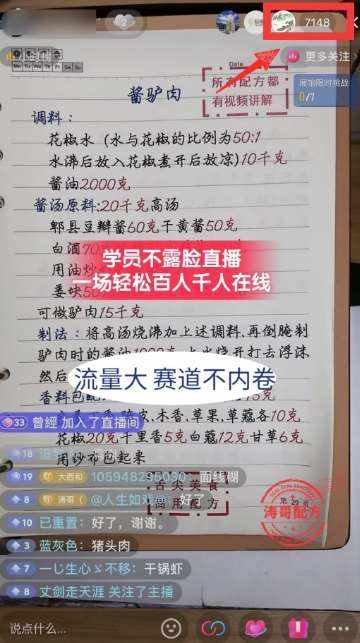 7148
更多关注
小时榜
展馆限时挑战
0/7
Date
Mo Tu We Th Fr Sa Su
所有配方都
有视频讲解
酱驴肉
调料：
花椒水（水与花椒的比例为50:1
水沸后放入花椒煮开后放凉）10千克
酱油2000克
酱汤原料：20千克高汤
郫县豆瓣酱60克干黄酱50克
白酒
用油炒
姜块
可做驴肉15千克
学员不露脸直播
一场轻松百人千人在线
制法：将高汤烧沸加上述调料，再倒腌制
驴肉时的酱油1000克
上火烧开打去浮沫
然后
流量大 赛道不内卷
香料包配
木香、草果、草蔻各10克
花椒20克千里香5克白蔻12克甘草6克
用纱布包起来
33 曾經 加入了直播间
19 大西和 105948295080：面线糊
8 涛哥 @人生如戏
好了
10 已重置：好了，谢谢。
3 蓝灰色：猪头肉
一じ生心ゞ不移：干锅虾
8 丈剑走天涯 关注了主播
商用配方
涛哥配方
说点什么...